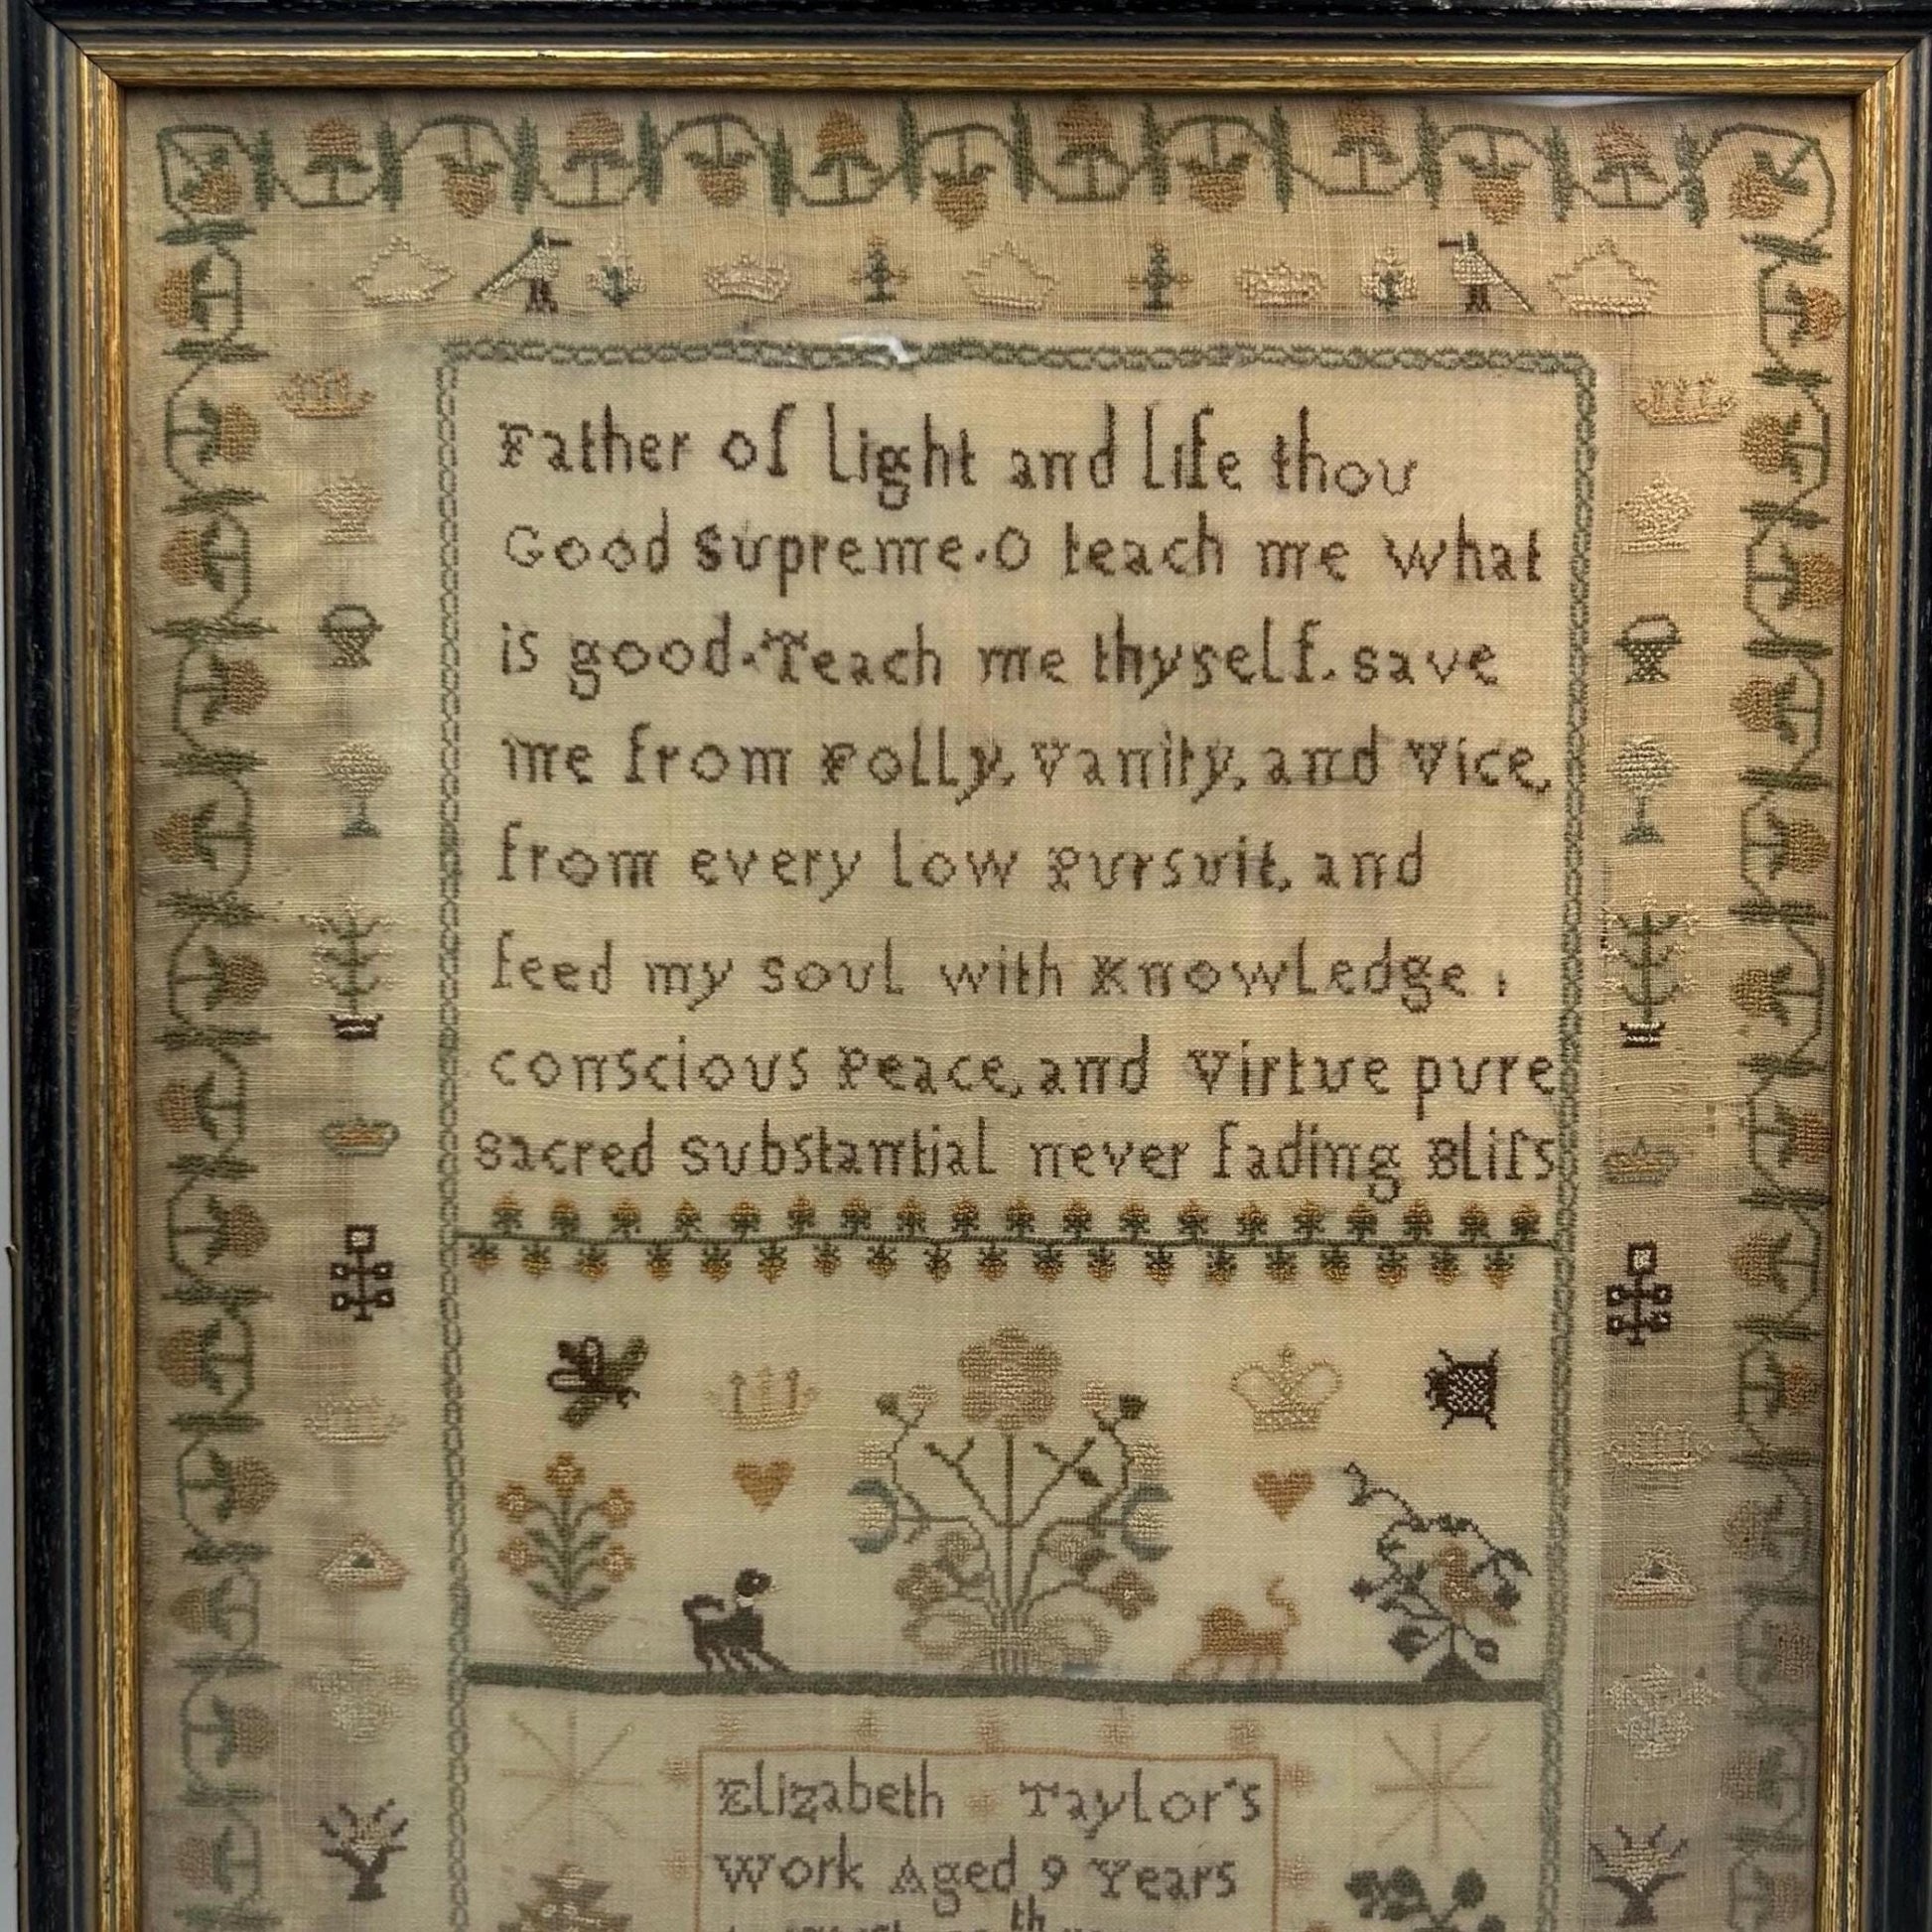 Father of Light and Life thou
Good Supreme. O teach me what
is good. Teach me thyself. save
me from Folly, Vanity, and Vice,
from every Low Pursuit, and
feed my soul with Knowledge,
conscious Peace, and Virtue pure
sacred substantial never fading Bliſs
Elizabeth Taylor's
Work Aged 9 Years
th